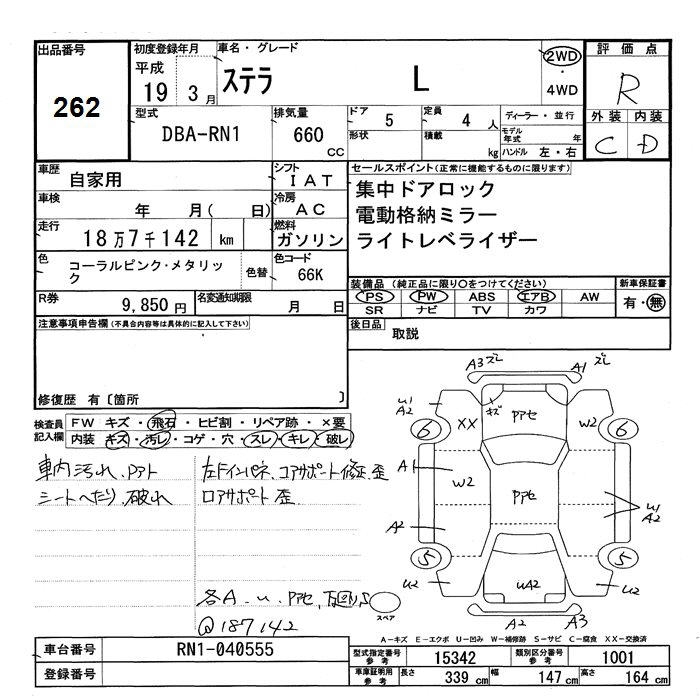 出品番号
262
初度登録年月
平成
19 3月
車名・グレード
ステラ L
2WD
・
4WD
評価点
R
外装 内装
C D
型式
DBA-RN1
排気量
660
CC
ドア
5
定員
4 人
形状
積載
kg
ディーラー・並行
モデル年式 年
ハンドル 左・右
車歴
自家用
シフト
IAT
車検
年 月( 日)
冷房
AC
走行
18万7千142 km
燃料
ガソリン
色
コーラルピンク・メタリック
色替
色コード
66K
セールスポイント(正常に機能するものに限ります)
集中ドアロック
電動格納ミラー
ライトレベライザー
R券
9,850円
名変通知期限
月 日
装備品 (純正品に限り○をつけてください)
PS PW ABS エアB AW
SR ナビ TV カワ
新車保証書
有・無
注意事項申告欄(不具合内容等は具体的に記入して下さい)
後日品
取説
修復歴 有〔箇所 〕
検査員
記入欄
FW キズ・飛石・ヒビ割・リペア跡・×要
内装 キズ・汚レ・コゲ・穴・スレ・キレ・破レ
車内汚れ、
シートへたり、破れ
左ドインパネ、コアサポート修正、歪
ロアサポート歪
各A、u、アセ、
@187142
A3 ズレ
A1 ズレ
u1
A2
XX
キズ
アアセ
W2
6
6
A1
W2
アアセ
u1
A2
A2
5
5
u2
uA2
u2
スペア
A2
A3
A-キズ E-エクボ U-凹み W-補修跡 S-サビ C-腐食 XX-交換済
車台番号
RN1-040555
登録番号
型式指定番号
参考
15342
類別区分番号
参考
1001
車庫証明用
参考
長さ 339 cm
幅 147 cm
高さ 164 cm